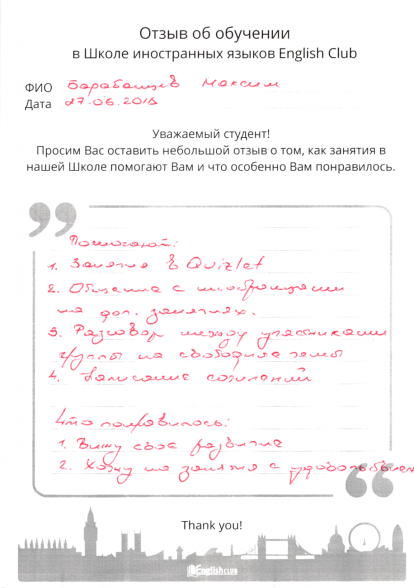 Отзыв об обучении
в Школе иностранных языков English Club
ФИО Барабанцев Максим
Дата 27.06.2018
Уважаемый студент!
Просим Вас оставить небольшой отзыв о том, как занятия в
нашей Школе помогают Вам и что особенно Вам понравилось.
Помогают:
1. Занятия в Quizlet
2. Общение с иностранцами
на доп. занятиях.
3. Разговор между участниками
группы на свободные темы
4. Написание сочинений
Что понравилось:
1. Вижу свое развитие
2. Хожу на занятия с удовольствием
Thank you!
English CLUB